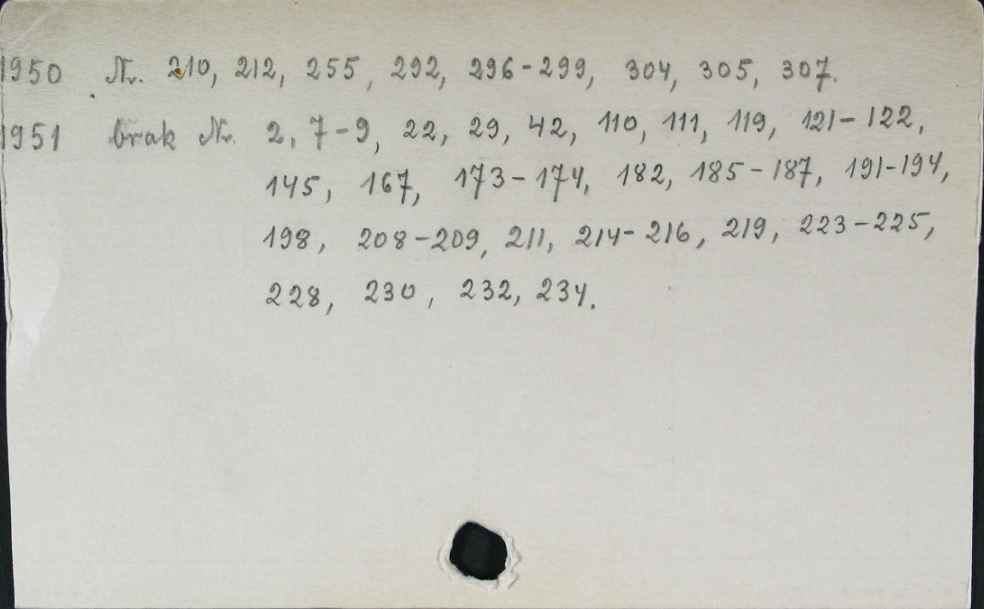 1950 Nr. 210, 212, 255, 292, 296-299, 304, 305, 307.
1951 brak Nr. 2, 7-9, 22, 29, 42, 110, 111, 119, 121-122,
145, 167, 173-174, 182, 185-187, 191-194,
198, 208-209, 211, 214-216, 219, 223-225,
228, 230, 232, 234.